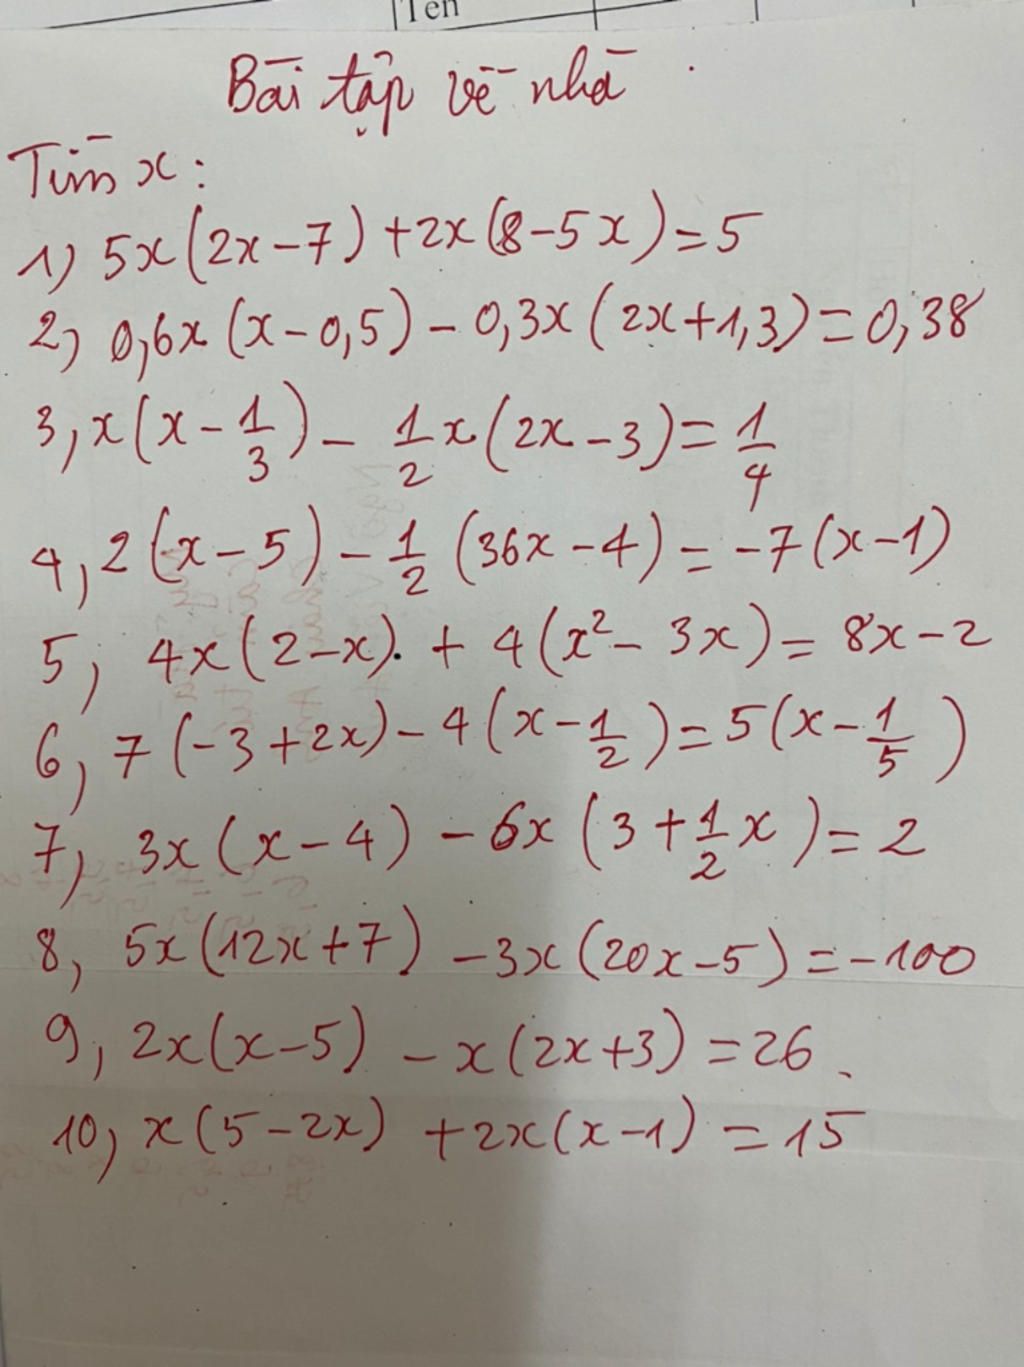 Tên
Bài tập về nhà
Tìm x:
1) 5x(2x-7)+2x(8-5x)=5
2) 0,6x(x-0,5)-0,3x(2x+1,3)=0,38
3, x(x-1/3)-1/2x(2x-3)=1/4
4, 2(x-5)-1/2(36x-4)=-7(x-1)
5, 4x(2-x).+4(x²-3x)=8x-2
6, 7(-3+2x)-4(x-1/2)=5(x-1/5)
7, 3x(x-4)-6x(3+1/2x)=2
8, 5x(12x+7)-3x(20x-5)=-100
9, 2x(x-5)-x(2x+3)=26
10, x(5-2x)+2x(x-1)=15